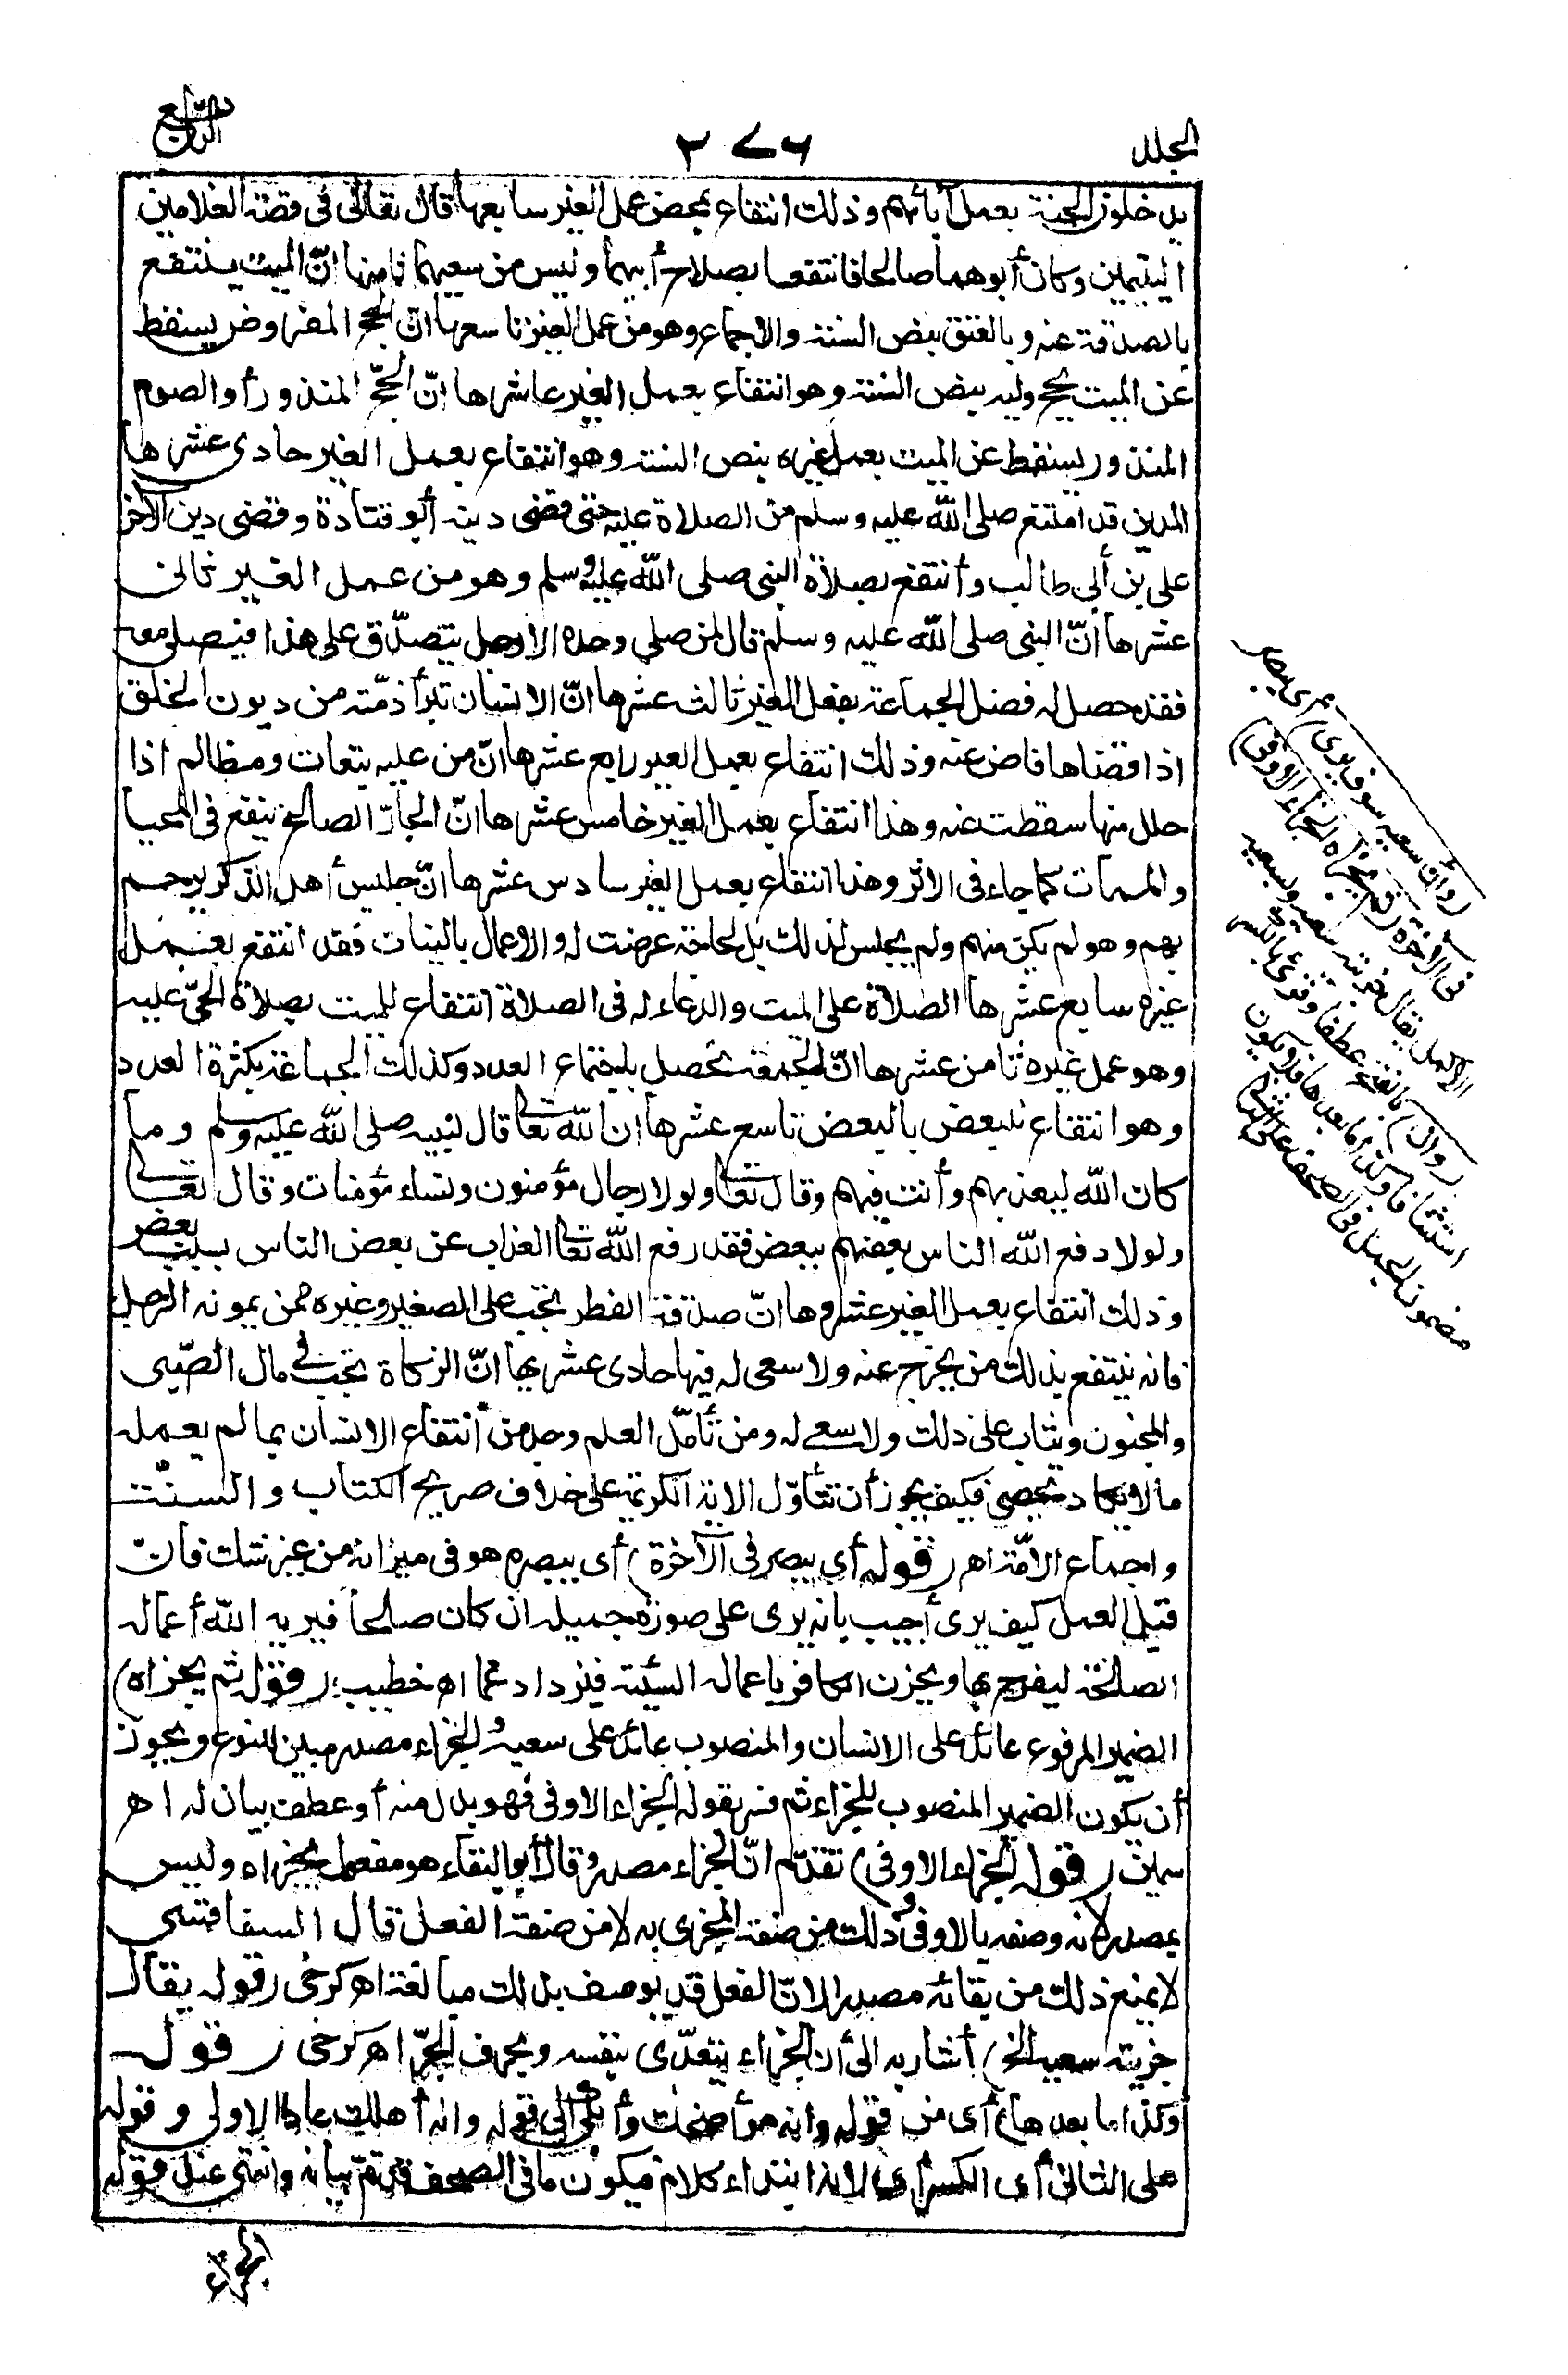 المجلد
٢٧٦
الرابع
يدخلون الجنة بعمل آبائهم وذلك انتفاع بمحض عمل الغير سابعها قال تعالى فى قصة الغلامين
اليتيمين وكان أبوهما صالحا فانتفعا بصلاح أبيهما وليس من سعيهما ثامنها انّ الميت ينتفع
بالصدقة عنه وبالعتق بنص السنة والاجماع وهو من عمل الغير تاسعها انّ الحج المفروض يسقط
عن الميت بحج وليه بنص السنة وهو انتفاع بعمل الغير عاشرها انّ الحجّ المنذور أو الصوم
المنذور يسقط عن الميت بعمل غيره بنص السنة وهو انتفاع بعمل الغير حادى عشرها
المدين قد امتنع صلى الله عليه وسلم من الصلاة عليه حتى قضى دينه أبو قتادة وقضى دين الآخر
على بن أبى طالب وأنتفع بصلاة النبى صلى الله عليه وسلم وهو من عمل الغير ثانى
عشرها انّ النبى صلى الله عليه وسلم قال لمن صلى وحده الا رجل يتصدّق على هذا فيصلى معه
فقد حصل له فضل الجماعة بفعل الغير ثالث عشرها انّ الانسان تبرأ ذمّته من ديون الخلق
اذا قضاها قاض عنه وذلك انتفاع بعمل الغير رابع عشرها انّ من عليه تبعات ومظالم اذا
حلل منها سقطت عنه وهذا انتفاع بعمل الغير خامس عشرها انّ الجار الصالح ينفع فى المحيا
والممات كما جاء فى الاثر وهذا انتفاع بعمل الغير سادس عشرها انّ جليس أهل الذكر يرحم
بهم وهو لم يكن منهم ولم يجلس لذلك بل لحاجة عرضت له والاعمال بالنيات فقد انتفع بعمل
غيره سابع عشرها الصلاة على الميت والدعاء له فى الصلاة انتفاع للميت بصلاة الحىّ عليه
وهو عمل غيره ثامن عشرها انّ الجمعة تحصل باجتماع العدد وكذلك الجماعة بكثرة العدد
وهو انتفاع للبعض بالبعض تاسع عشرها ان الله تعالى قال لنبيه صلى الله عليه وسلم وما
كان الله ليعذبهم وأنت فيهم وقال تعالى ولولا رجال مؤمنون ونساء مؤمنات وقال تعالى
ولولا دفع الله الناس بعضهم ببعض فقد رفع الله تعالى العذاب عن بعض الناس بسبب بعض
وذلك انتفاع بعمل الغير عشروها انّ صدقة الفطر تجب على الصغير وغيره ممن يمونه الرجل
فانه ينتفع بذلك من يخرج عنه ولا سعى له فيها حادى عشريها انّ الزكاة تجب فى مال الصّبى
والمجنون ويثاب على ذلك ولا سعى له ومن تأمّل العلم وجد من انتفاع الانسان بما لم يعمله
مالا يكاد يحصى فكيف يجوز أن نتأوّل الاية الكريمة على خلاف صريح الكتاب والسنّت
واجماع الامّة اهـ (قوله أى يبصر فى الآخرة) أى يبصره هو فى ميزانه من غير شك فانّ
قيل العمل كيف يرى أجيب بانه يرى على صورة جميلة ان كان صالحا فيريه الله أعماله
الصالحة ليفرح بها ويحزن الكافر باعماله السيّئة فيزداد غما اهـ خطيب (قوله ثم يجزاه)
الضمير المرفوع عائد على الانسان والمنصوب عائد على سعيه والجزاء مصدر مبين للنوع ويجوز
أن يكون الضمير المنصوب للجزاء ثم فسر بقوله الجزاء الاوفى فهو بدل منه أو عطف بيان له اهـ
سمين (قوله الجزاء الاوفى) تقدّم انّ الجزاء مصدر وقال أبو البقاء هو مفعول يجزاه وليس
بمصدر لانه وصفه بالاوفى وذلك من صفة المجزى به لا من صفة الفعل قال السفاقسى
لا يمنع ذلك من بقائه مصدرا لانّ الفعل قد يوصف بذلك مبالغة اهـ كرخى (قوله يقال
جزيته سعيه الخ) أشار به الى أن الجزاء يتعدّى بنفسه وبحرف الجرّ اهـ كرخى (قوله
وكذا ما بعدها) أى من قوله وانه هو أضحك وأبكى الى قوله وانه أهلك عادا الاولى وقوله
على الثانى أى الكسر أى لانه ابتداء كلام فيكون ما فى الصحف قد تمّ بيانه وانتهى عند قوله
الجزاء
(وأنّ سعيه سوف يرى) أى يبصر
فى الآخرة (ثم يجزاه الجزاء الاوفى)
الاكمل يقال جزيته سعيه وبسعيه
(وان) بالفتح عطفا وقرئ بالكسر
استئنافا وكذا ما بعدها فلا يكون
مضمون الجمل فى الصحف على الثانى